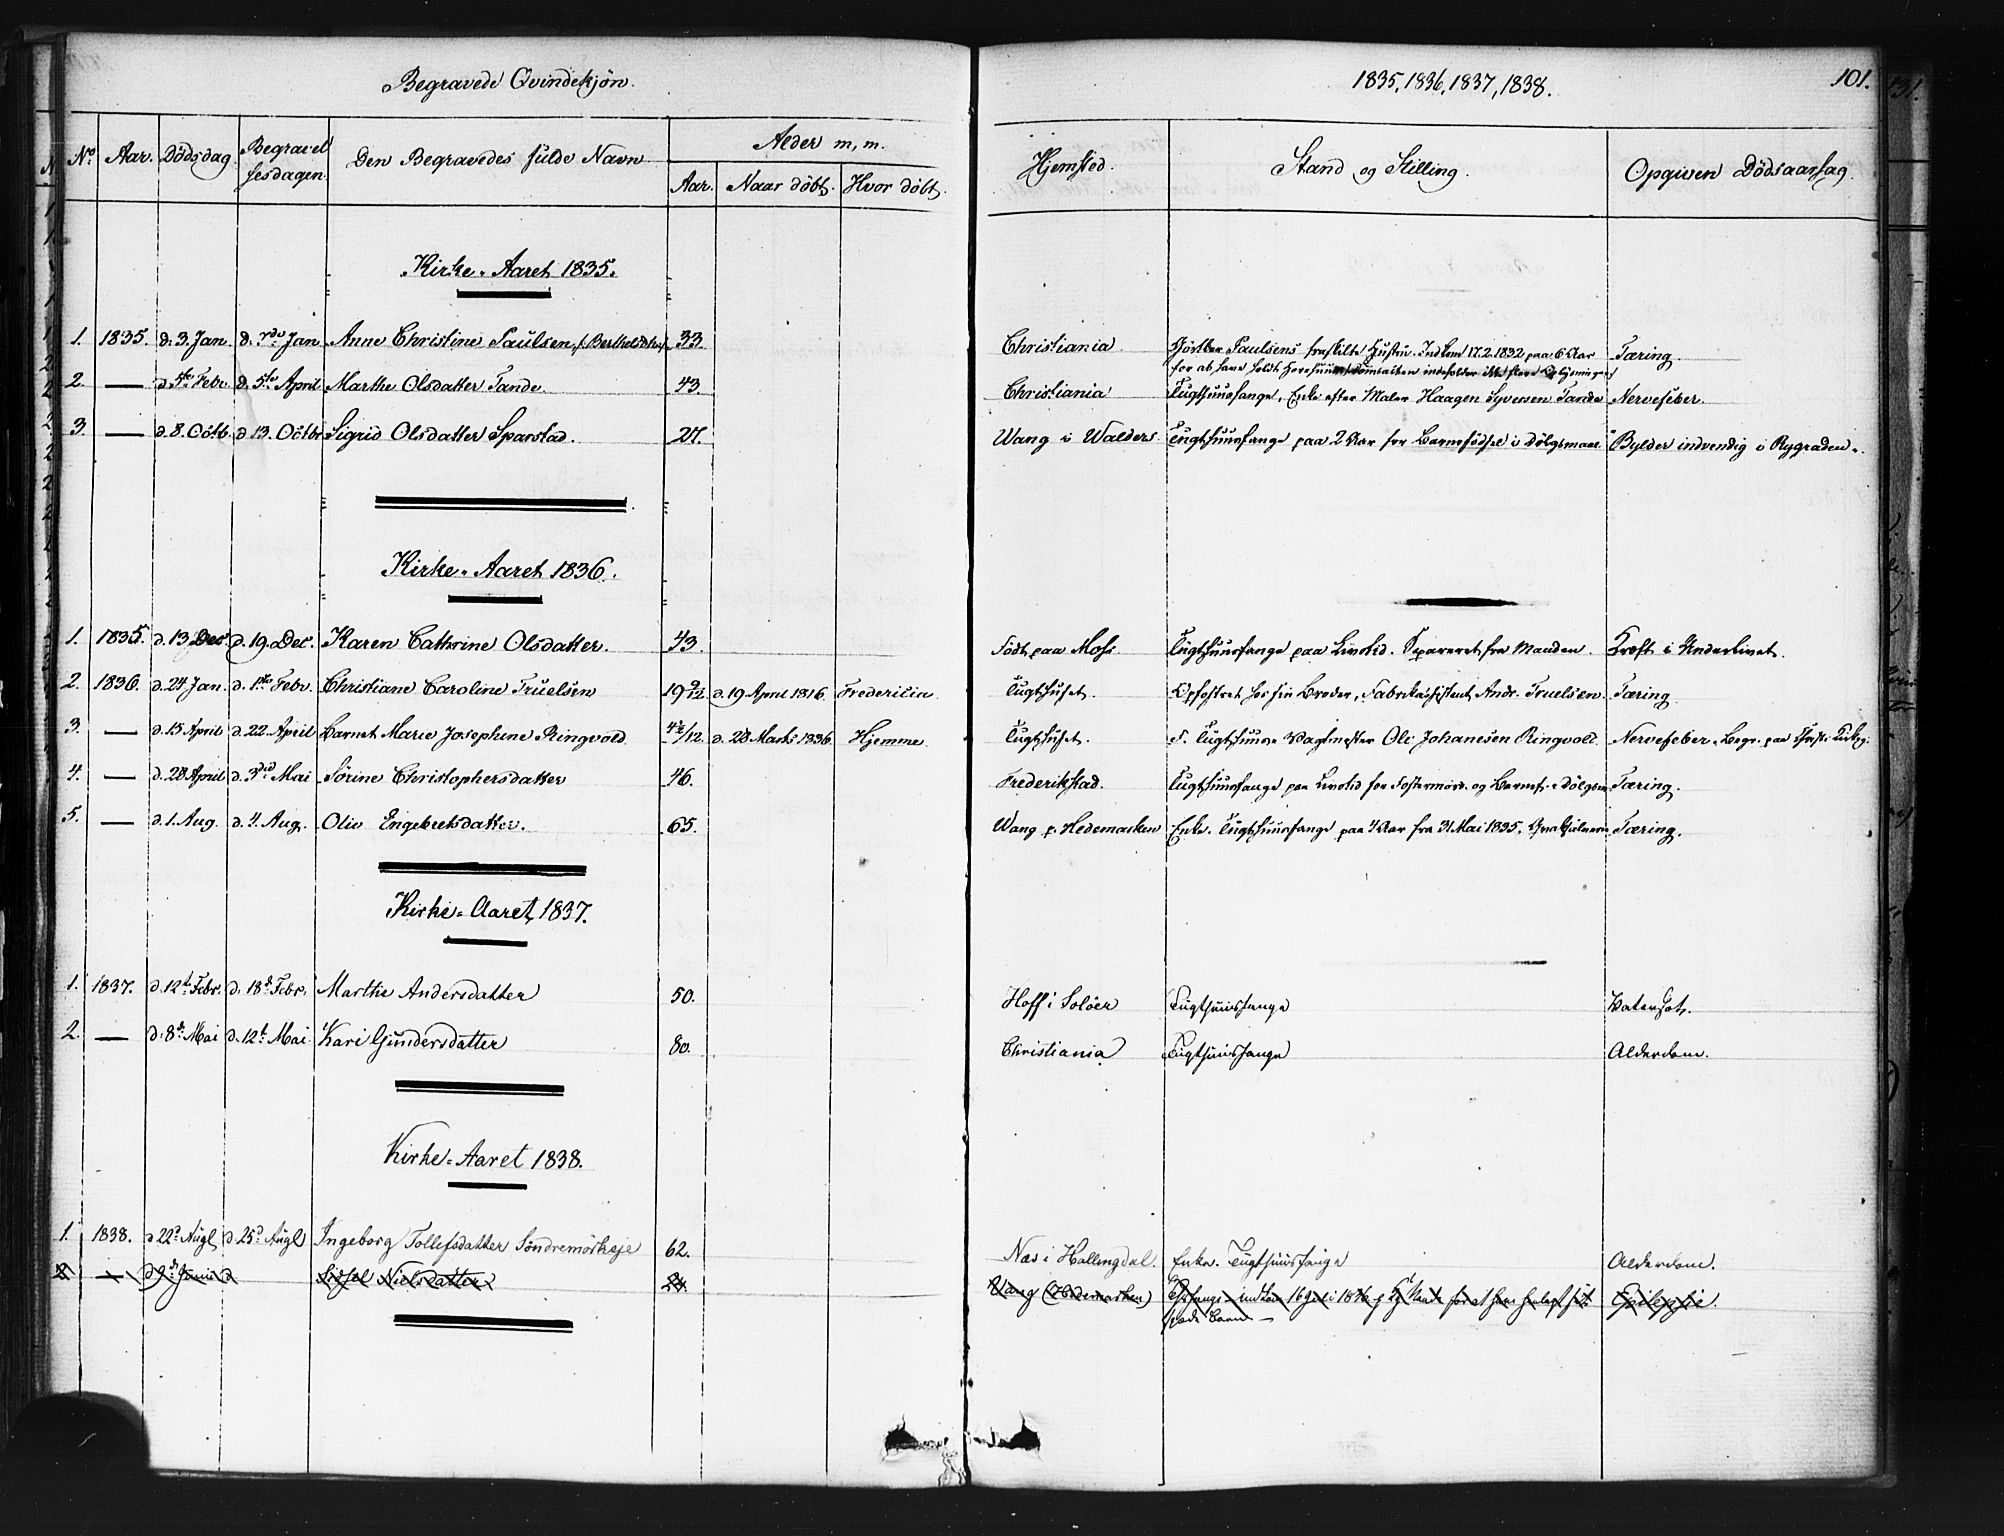 Begravede Qvindekjön.
1835, 1836, 1837, 1838.
101.
No. Aar. Dödsdag. Begravelsesdagen. Den Begravedes fulde Navn Alder m, m. Hjemsted. Stand og Stilling. Opgiven Dödsaarsag.
Aar. Naar döbt. Hvor döbt.
Kirke-Aaret 1835.
1. 1835. d. 3. Jan. d. 7de Jan Anne Christine Paulsen 33. Christiania Paulsens fraskilte Hustru. Indkom 17.2.1832 paa 6 Aar Tæring.
for at have
2. — d. 4de Febr. d. 5te April Marthe Olsdatter Tande 43. Christiania Tugthuusfange, Enke efter Maler Haagen Syversen Tande Nervefeber.
3. — d. 8. Octb. d. 13. Octbr Sigrid Olsdatter Sparstad. 27. Wang i Walders Tugthuusfange paa 2 Aar for Barnefödsel i Dölgsmaal. Bylder indvendig i Rygraden.
Kirke-Aaret 1836.
1. 1835. d. 13. Dec. d. 19. Dec. Karen Cathrine Olsdatter. 43. Födt paa Moss Tugthuusfange paa Livstid. Separeret fra Manden. Kræft i Underlivet.
2. 1836. d. 24 Jan. d. 1ste Febr. Christiane Caroline Truelsen 19 9/12 d. 19 April 1816. Tugthuset. Opfostret hos sin Broder, Andr. Truelsen. Tæring.
3. — d. 15 April d. 22. April Barnet Marie Josephine Ringvold d. 28 Marts 1836. Hjemme. Tugthuset. F. Tugthuus Vagtmester Ole Johanesen Ringvold. Nervefeber. Begr. paa
4. — d. 28 April d. 3die Mai Sörine Christophersdatter 46. Frederikstad. Tugthuusfange paa Livstid for Fostermord og Tæring.
5. — d. 1. Aug. d. 4. Aug. Olive Engebretsdatter. 65. Wang p. Hedemarken Enke. Tugthuusfange paa 4 Aar fra 31 Mai 1835. Tæring.
Kirke-Aaret 1837.
1. 1837. d. 12te Febr. d. 18de Febr. Marthe Andersdatter 50. Hoff i Solöer Tugthuusfange Vatersot.
2. — d. 8de Mai d. 12te Mai Kari Gundersdatter 80. Christiania Tugthuusfange Alderdom.
Kirke-Aaret 1838.
1. 1838. d. 22d Augt d. 25d Augt Ingeborg Tollefsdatter Söndremörkeje 62. Næs i Hallingdal. Enke. Tugthuusfange Alderdom.
2. — d 9de Junii d Sidsel Nielsdatter 24. Vang (Hedemarken) indkom 16 Juli 1836 Epilepsie.
spæde Barn —